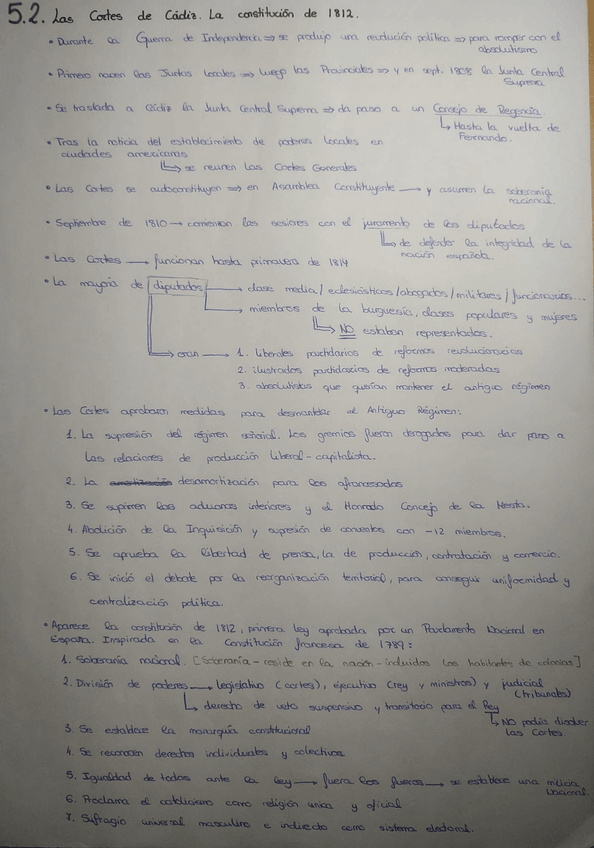 5.2. Las Cortes de Cádiz. La constitución de 1812.
• Durante la Guerra de Independencia ⇒ se produjo una revolución política ⇒ para romper con el
absolutismo
• Primero nacen las Juntas locales ⇒ luego las Provinciales ⇒ y en sept. 1808 la Junta Central
Suprema
• Se traslada a Cádiz la Junta Central Suprema ⇒ da paso a un Consejo de Regencia
↳ Hasta la vuelta de
Fernando.
• Tras la noticia del establecimiento de poderes locales en
ciudades americanas
↳ se reunen las Cortes Generales
• Las Cortes se autoconstituyen ⇒ en Asamblea Constituyente → y asumen la soberanía
nacional.
• Septiembre de 1810 → comienzan las sesiones con el juramento de los diputados
↳ de defender la integridad de la
nación española.
• Las Cortes → funcionan hasta primavera de 1814
• La mayoría de diputados → clase media / eclesiásticos / abogados / militares / funcionarios...
→ miembros de la burguesía, clases populares y mujeres
↳ NO estaban representados.
→ eran → 1. liberales partidarios de reformas revolucionarias
2. ilustrados partidarios de reformas moderadas
3. absolutistas que querían mantener el antiguo régimen
• Las Cortes aprobaron medidas para desmantelar el Antiguo Régimen:
1. La supresión del régimen señorial. Los gremios fueron derogados para dar paso a
las relaciones de producción liberal-capitalista.
2. La desamortización para los afrancesados
3. Se suprimen las aduanas interiores y el Honrado Concejo de la Mesta.
4. Abolición de la Inquisición y supresión de conventos con -12 miembros.
5. Se aprueba la libertad de prensa, la de producción, contratación y comercio.
6. Se inició el debate por la reorganización territorial, para conseguir uniformidad y
centralización política.
• Aparece la constitución de 1812, primera ley aprobada por un Parlamento Nacional en
España. Inspirada en la Constitución francesa de 1789:
1. Soberanía nacional. [Soberanía - reside en la nación - incluidos los habitantes de colonias]
2. División de poderes → legislativo (cortes), ejecutivo (rey y ministros) y judicial
(tribunales)
↳ derecho de veto suspensivo y transitorio para el Rey
↳ NO podía disolver
las Cortes.
3. Se establece la monarquía constitucional
4. Se reconocen derechos individuales y colectivos
5. Igualdad de todos ante la ley → fuera los fueros → se establece una milicia
Nacional.
6. Proclama el catolicismo como religión unica y oficial
7. Sufragio universal masculino e indirecto como sistema electoral.